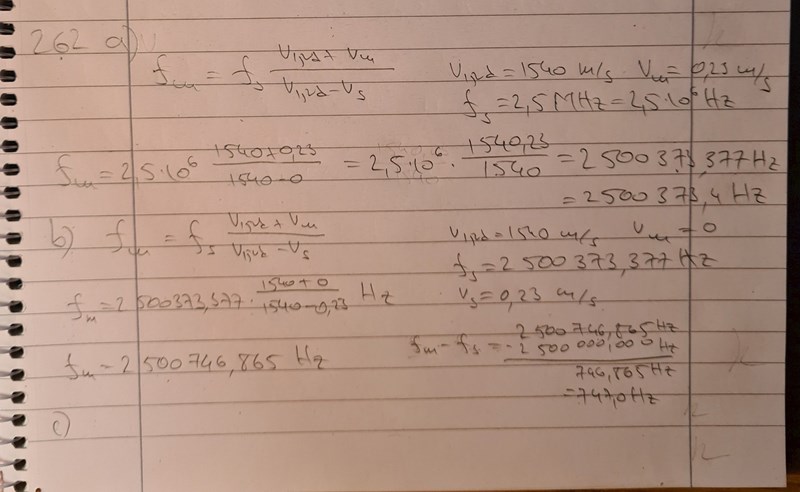 262 a)
f_m = f_s (V_ljud + V_m)/(V_ljud - V_s)
V_ljud = 1540 m/s V_m = 0,23 m/s
f_s = 2,5 MHz = 2,5·10⁶ Hz
f_m = 2,5·10⁶ (1540+0,23)/(1540-0) = 2,5·10⁶ · 1540,23/1540 = 2 500 373,377 Hz
= 2 500 373,4 Hz
b) f_m = f_s (V_ljud + V_m)/(V_ljud - V_s)
V_ljud = 1540 m/s V_m = 0
f_s = 2 500 373,377 Hz
f_m = 2 500373,377 · (1540 + 0)/(1540 - 0,23) Hz
V_s = 0,23 m/s
f_m = 2 500 746,865 Hz
f_m - f_s = 2 500 746,865 Hz
- 2 500 000,000 Hz
746,865 Hz
= 747,0 Hz
c)